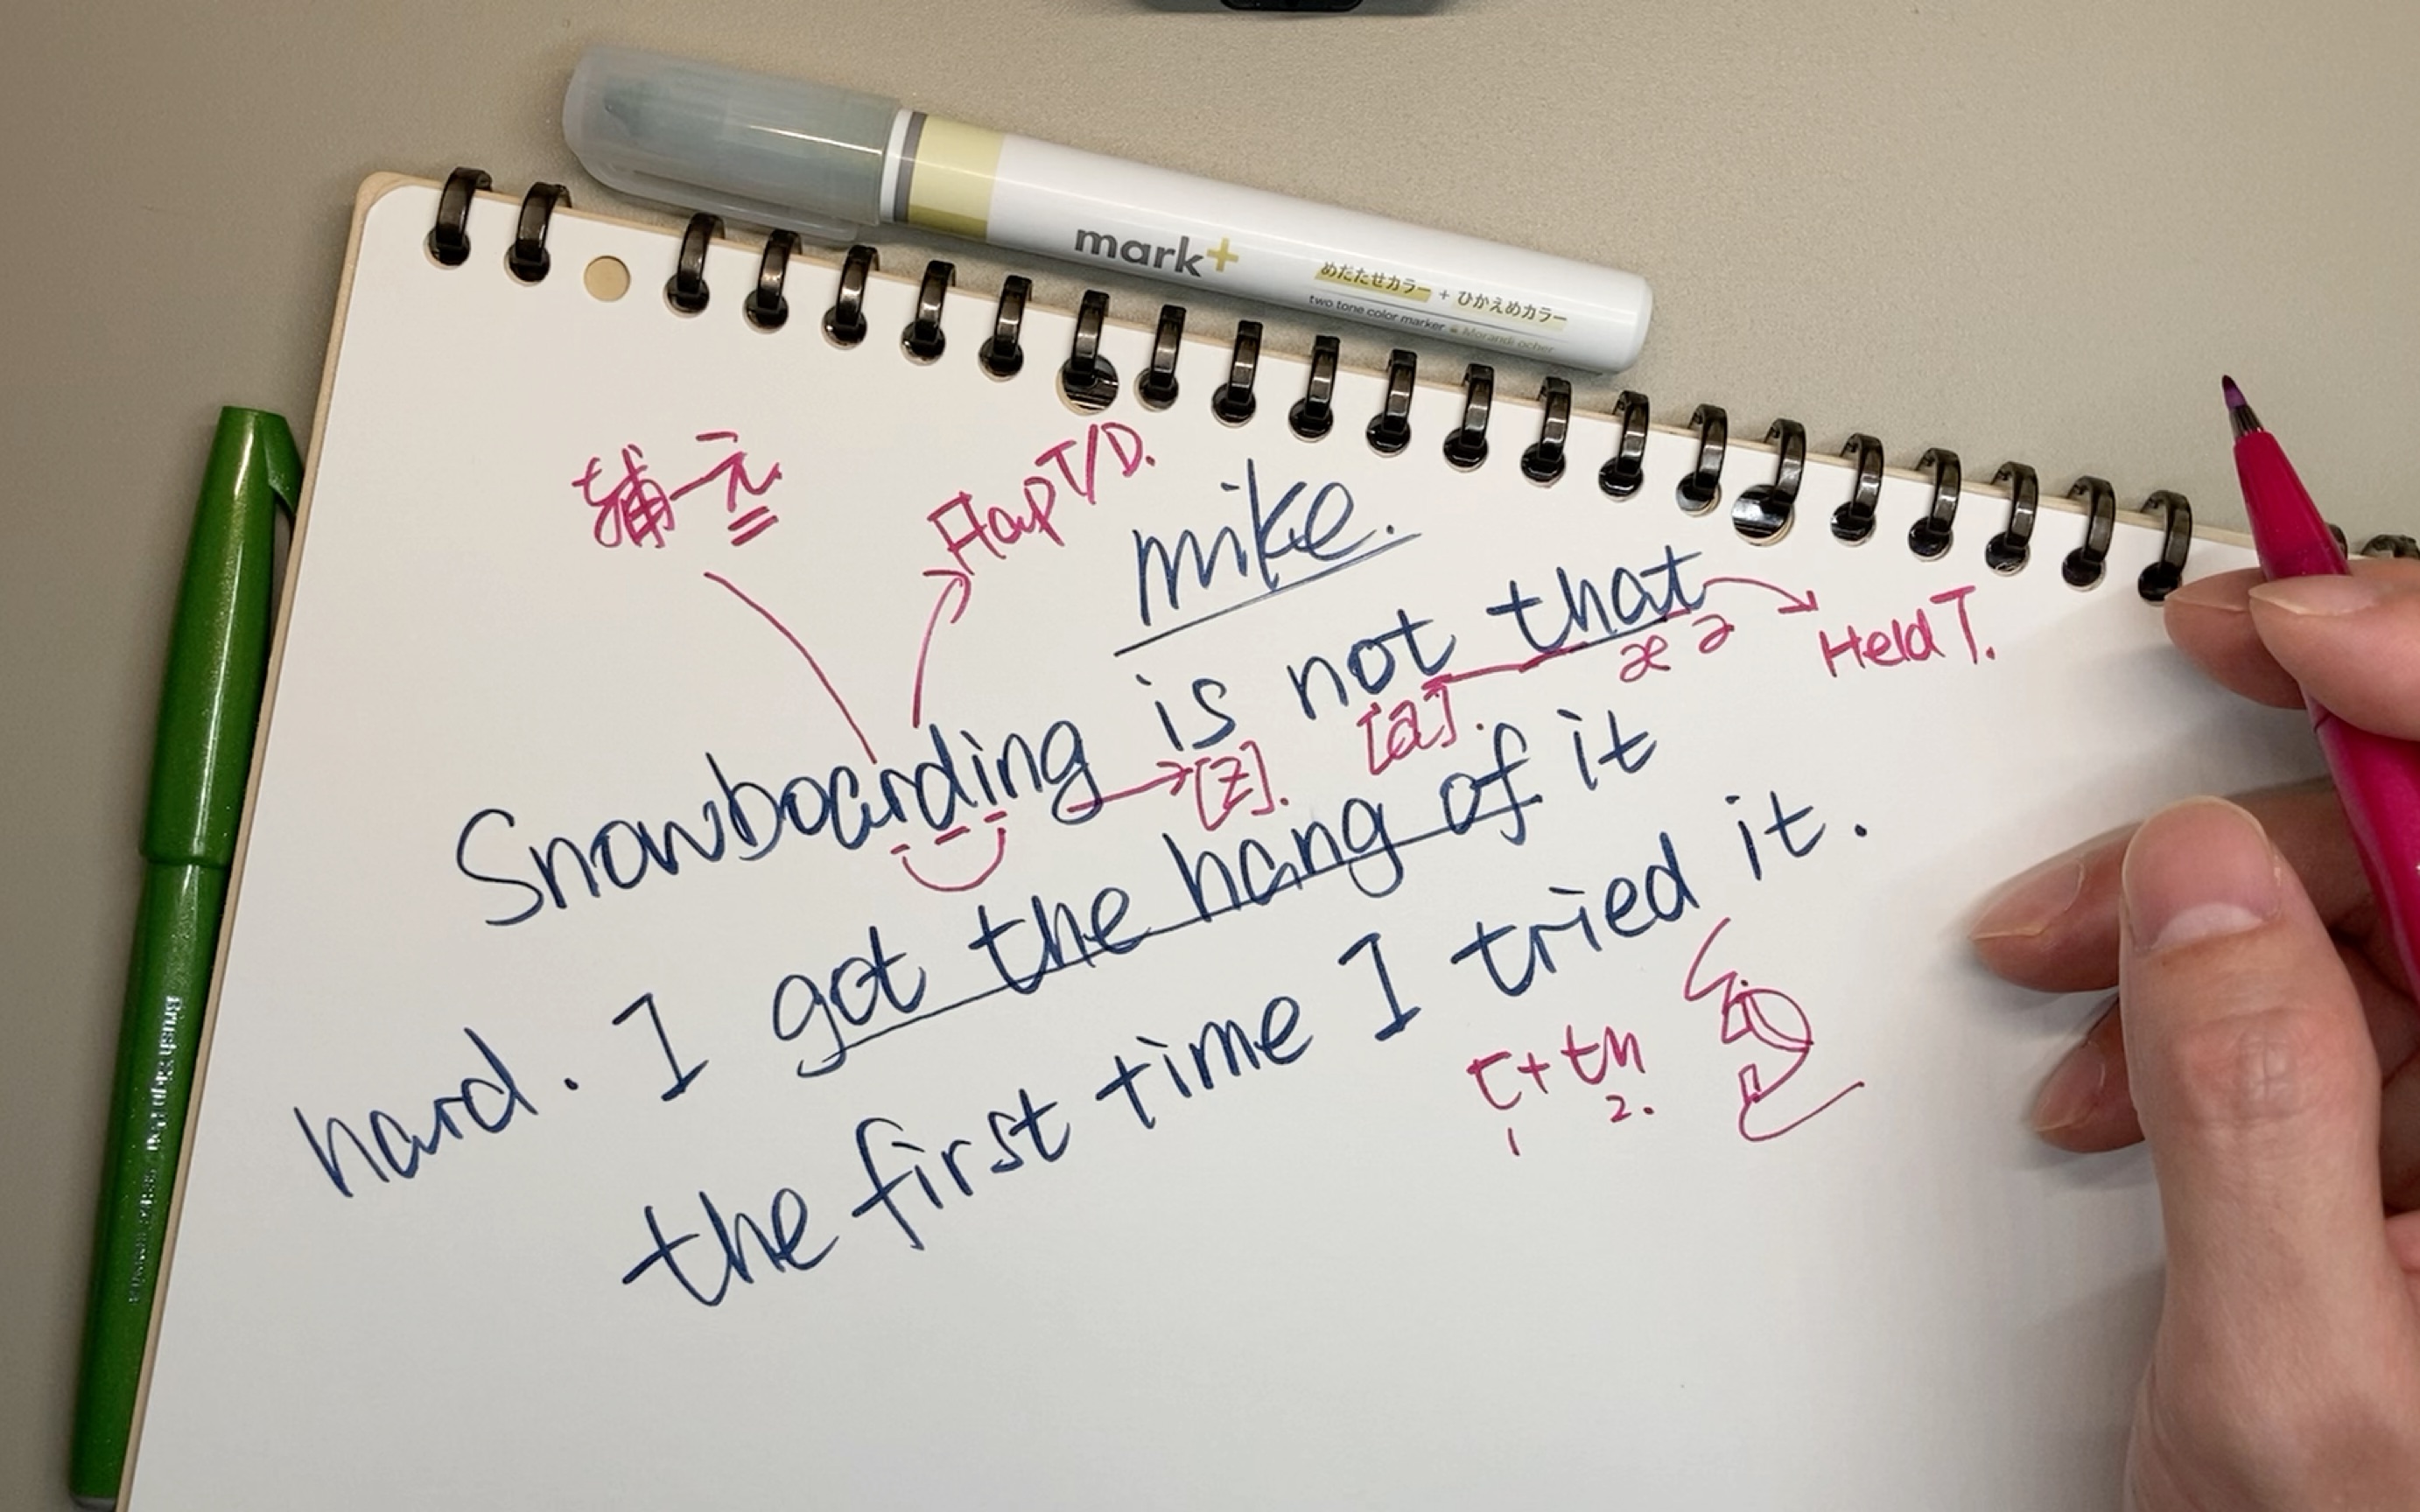 mark+
めだたせカラー + ひかえめカラー
two tone color marker Morandi ocher
辅一元
Flap T/D.
mike.
Snowboarding is not that
Held T.
æ ə
[z].
[a].
hard. I got the hang of it
the first time I tried it.
t+th
1 2.
Brush Sign Pen